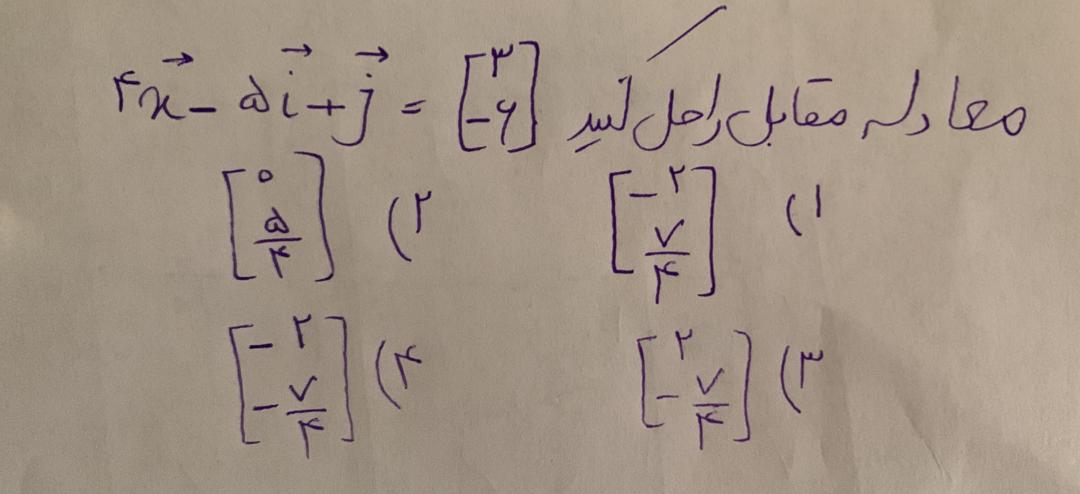 معادله مقابل را حل کنید ۴x⃗ − ۵i⃗ + j⃗ = [۳ −۶]
۱) [−۲ ۷/۴] ۲) [۰ ۵/۴]
۳) [۲ −۷/۴] ۴) [−۲ −۷/۴]